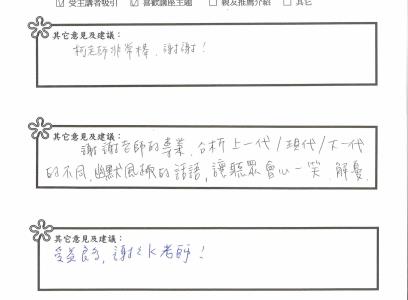 ☑ 受主講者吸引 ☑ 喜歡講座主題 ☐ 親友推薦介紹 ☐ 其它
其它意見及建議：
柯老師非常棒，謝謝！
其它意見及建議：
謝謝老師的專業，分析上一代/現代/下一代
的不同，幽默風趣的話語，讓聽眾會心一笑，解憂。
其它意見及建議：
受益良多，謝謝K老師！